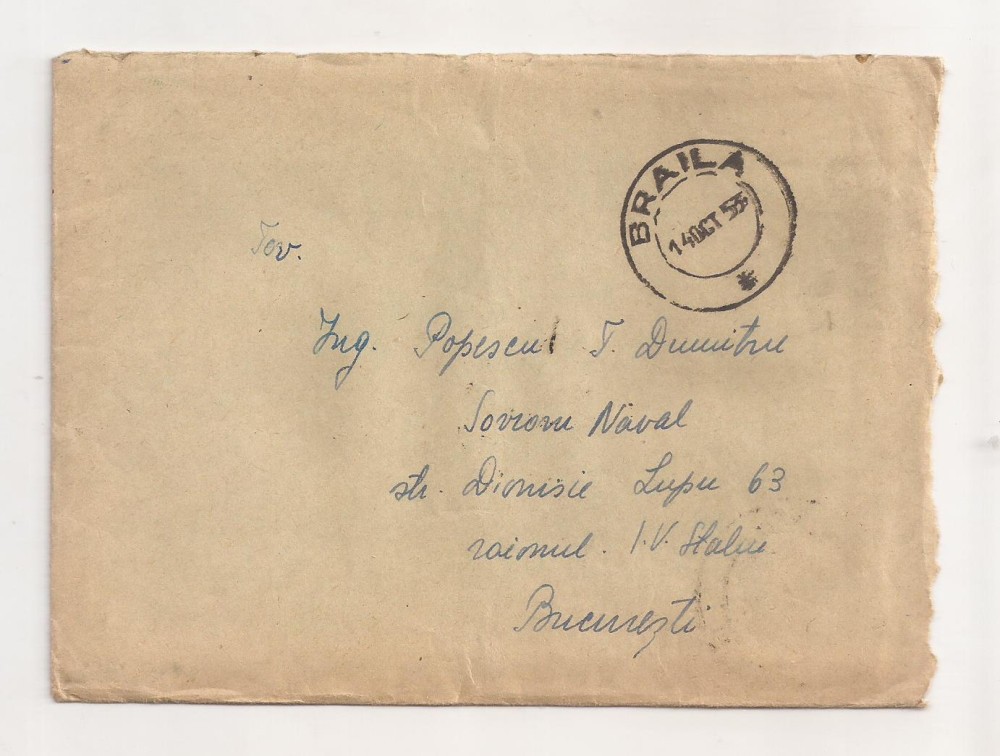 BRAILA
14 OCT 55
Tov.
Ing. Popescu T. Dumitru
Sovrom Naval
str. Dionisie Lupu 63
raionul. I.V. Stalin
București